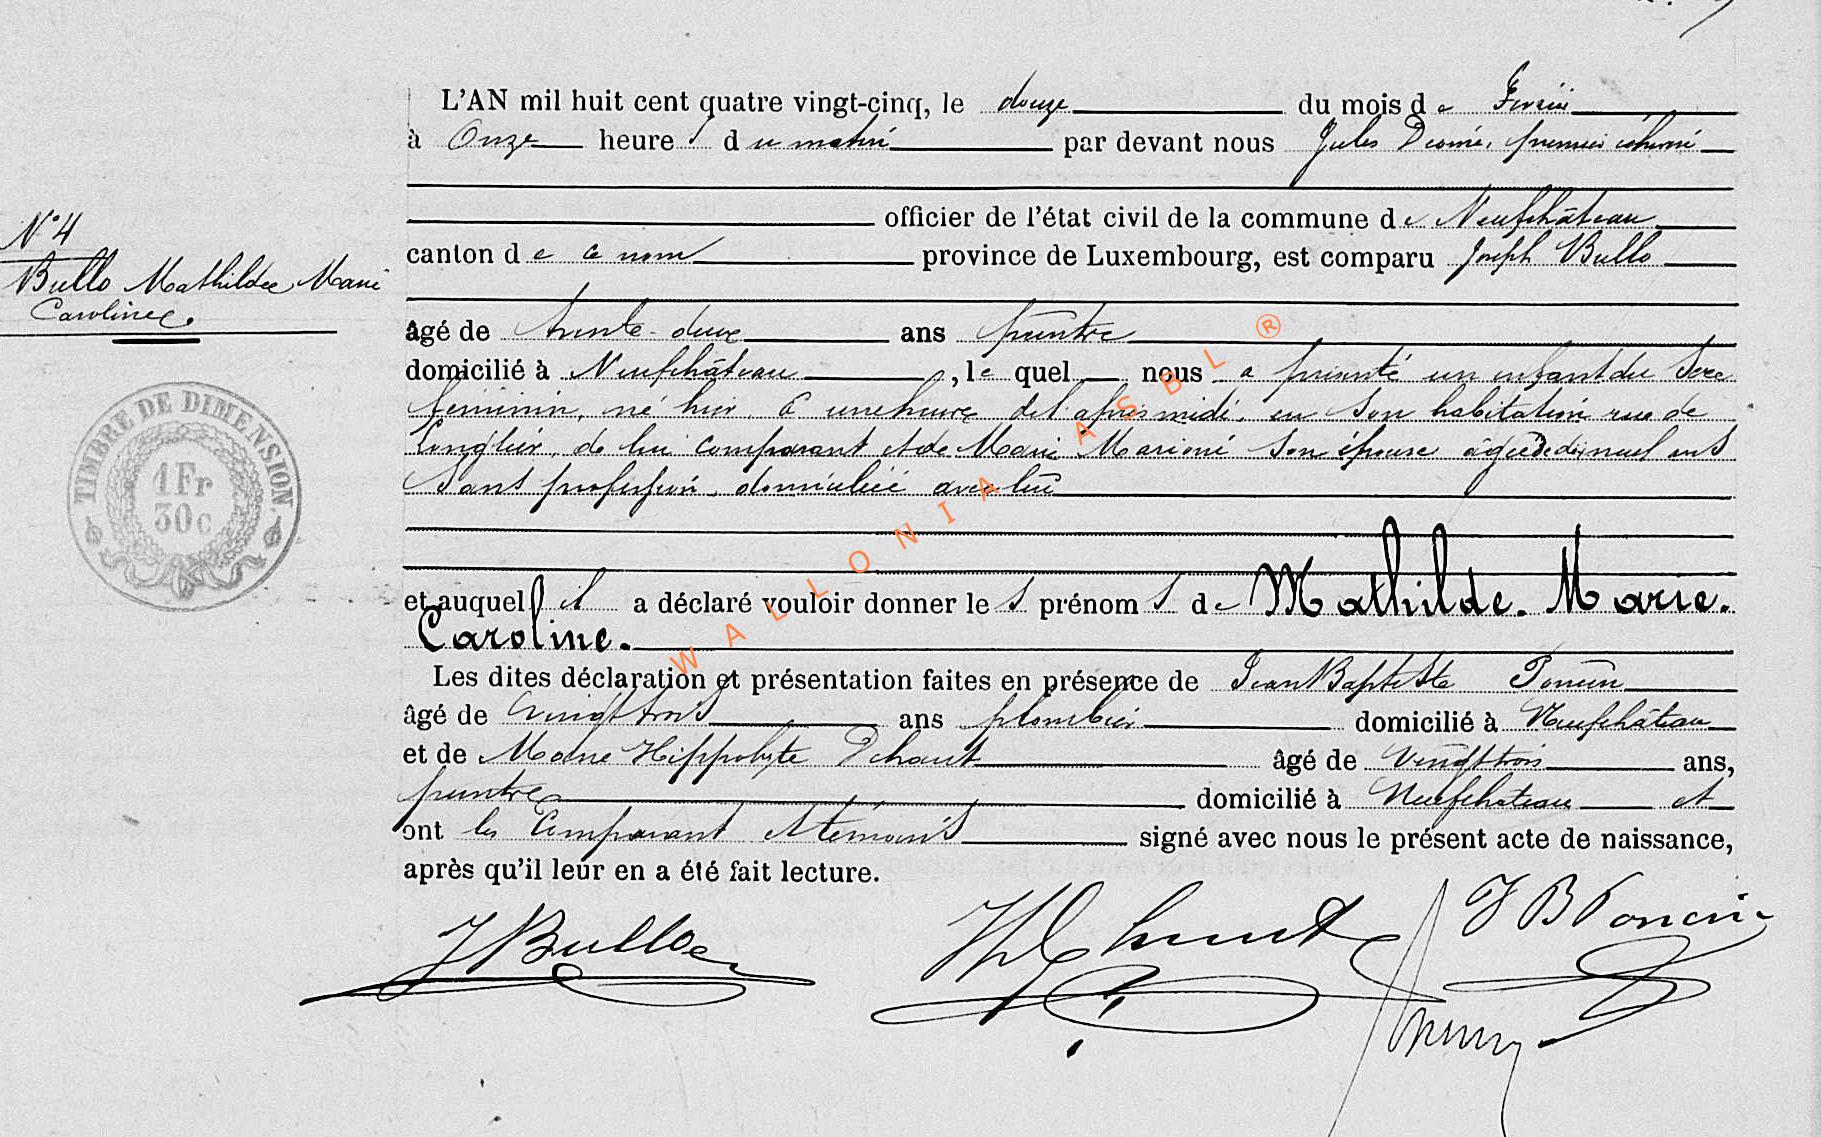 L'AN mil huit cent quatre vingt-cinq, le douze du mois de Février
à Onze heures du matin par devant nous Jules premier échevin
officier de l'état civil de la commune de Neufchâteau
N° 4
canton de ce nom province de Luxembourg, est comparu Joseph Bullo
Bullo Mathilde Marie
Caroline
âgé de trente-deux ans peintre
domicilié à Neufchâteau, lequel nous a présenté un enfant du sexe
féminin, né hier à une heure de l'après midi, en son habitation rue de
Longlier, de lui comparant et de Marie son épouse âgée de ans
sans profession, domiciliée avec lui
TIMBRE DE DIMENSION.
1 Fr
30 c
et auquel il a déclaré vouloir donner les prénoms de Mathilde. Marie.
Caroline.
Les dites déclaration et présentation faites en présence de Jean Baptiste Poncin
âgé de vingt trois ans plombier domicilié à Neufchâteau
et de Marie Hippolyte Dehant âgé de vingt trois ans,
peintre domicilié à Neufchateau et
ont les Comparant et témoins signé avec nous le présent acte de naissance,
après qu'il leur en a été fait lecture.
J Bullo
J B Poncin
WALLONIA ASBL ®